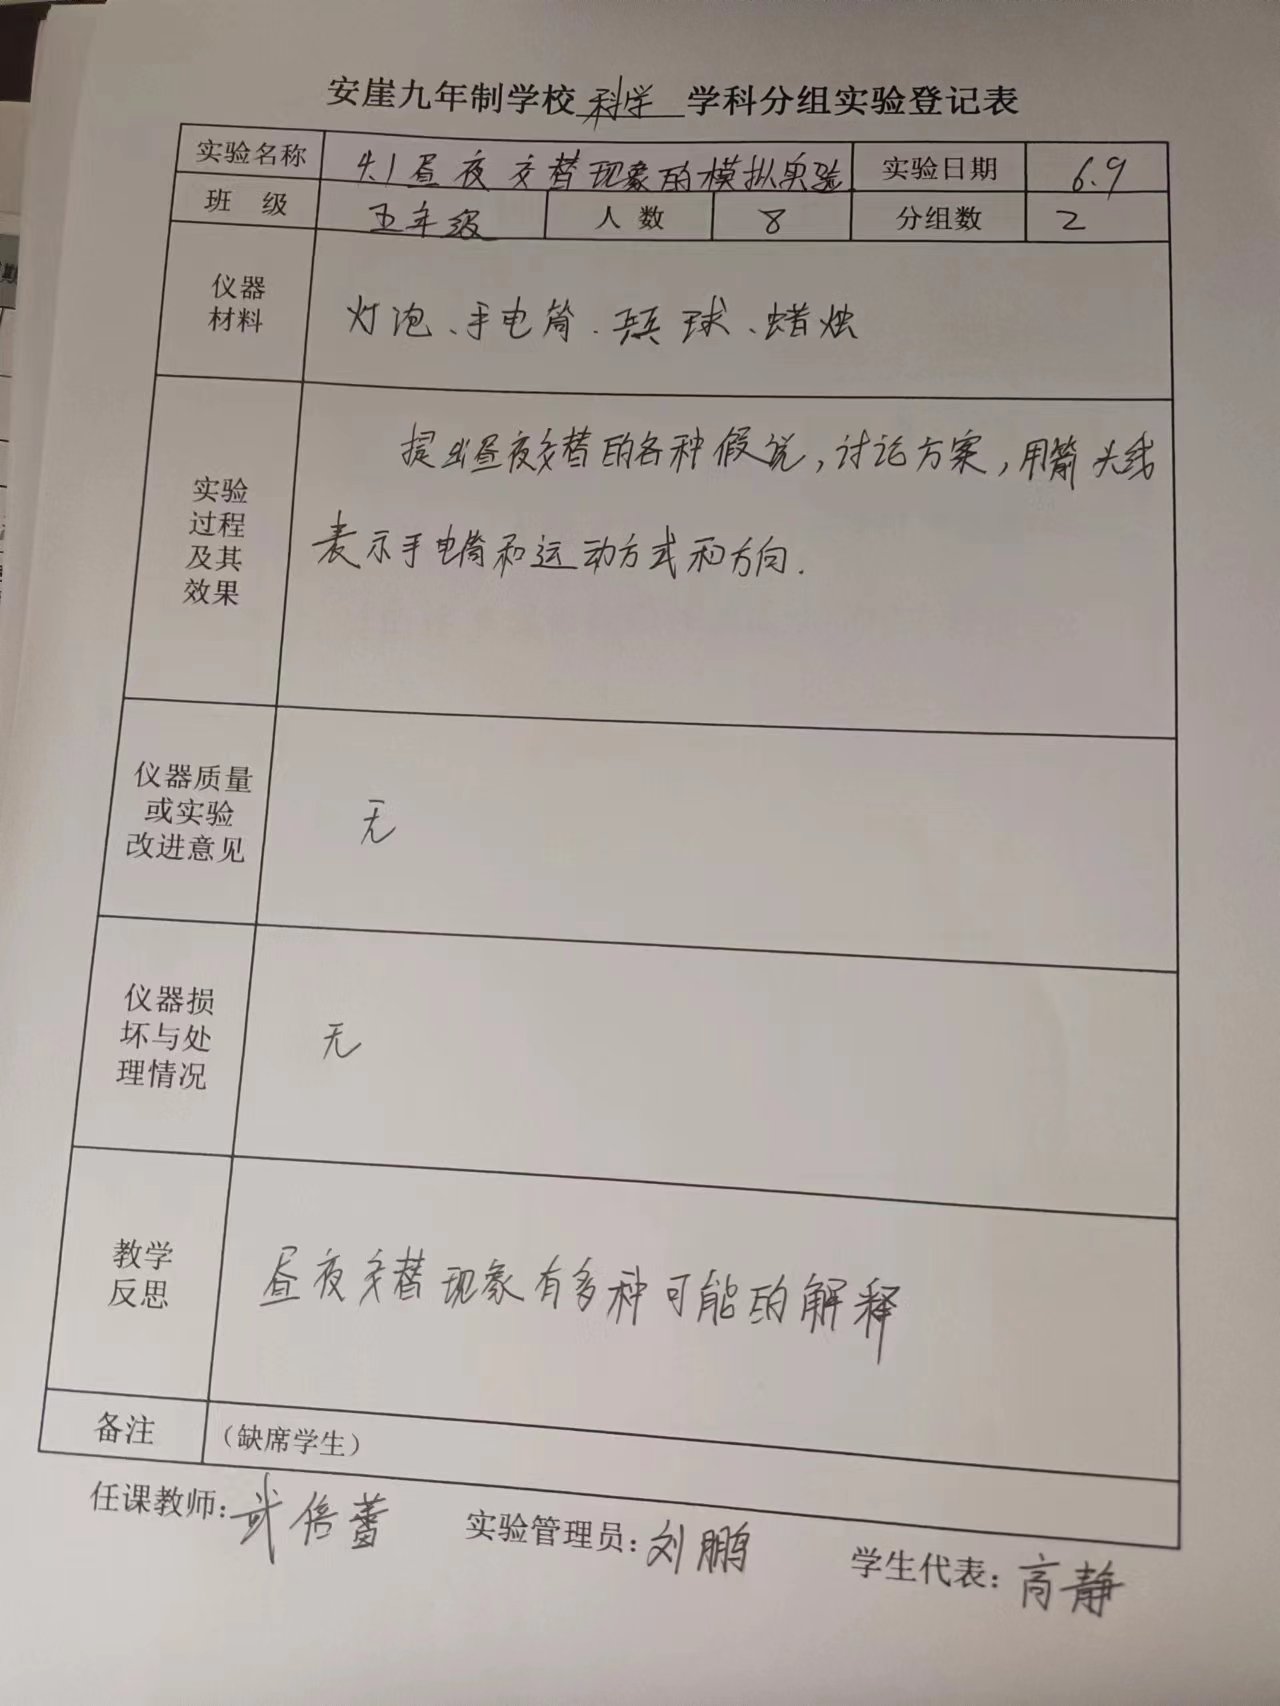 安崖九年制学校 科学 学科分组实验登记表
实验名称 4.1昼夜交替现象的模拟实验 实验日期 6.9
班 级 五年级 人 数 8 分组数 2
仪器
材料
灯泡、手电筒、乒乓球、蜡烛
实验
过程
及其
效果
提出昼夜交替的各种假说,讨论方案,用箭头线
表示手电筒和运动方式和方向.
仪器质量
或实验
改进意见
无
仪器损
坏与处
理情况
无
教学
反思
昼夜交替现象有多种可能的解释
备注 (缺席学生)
任课教师: 武倍蕾 实验管理员: 刘鹏 学生代表: 高静